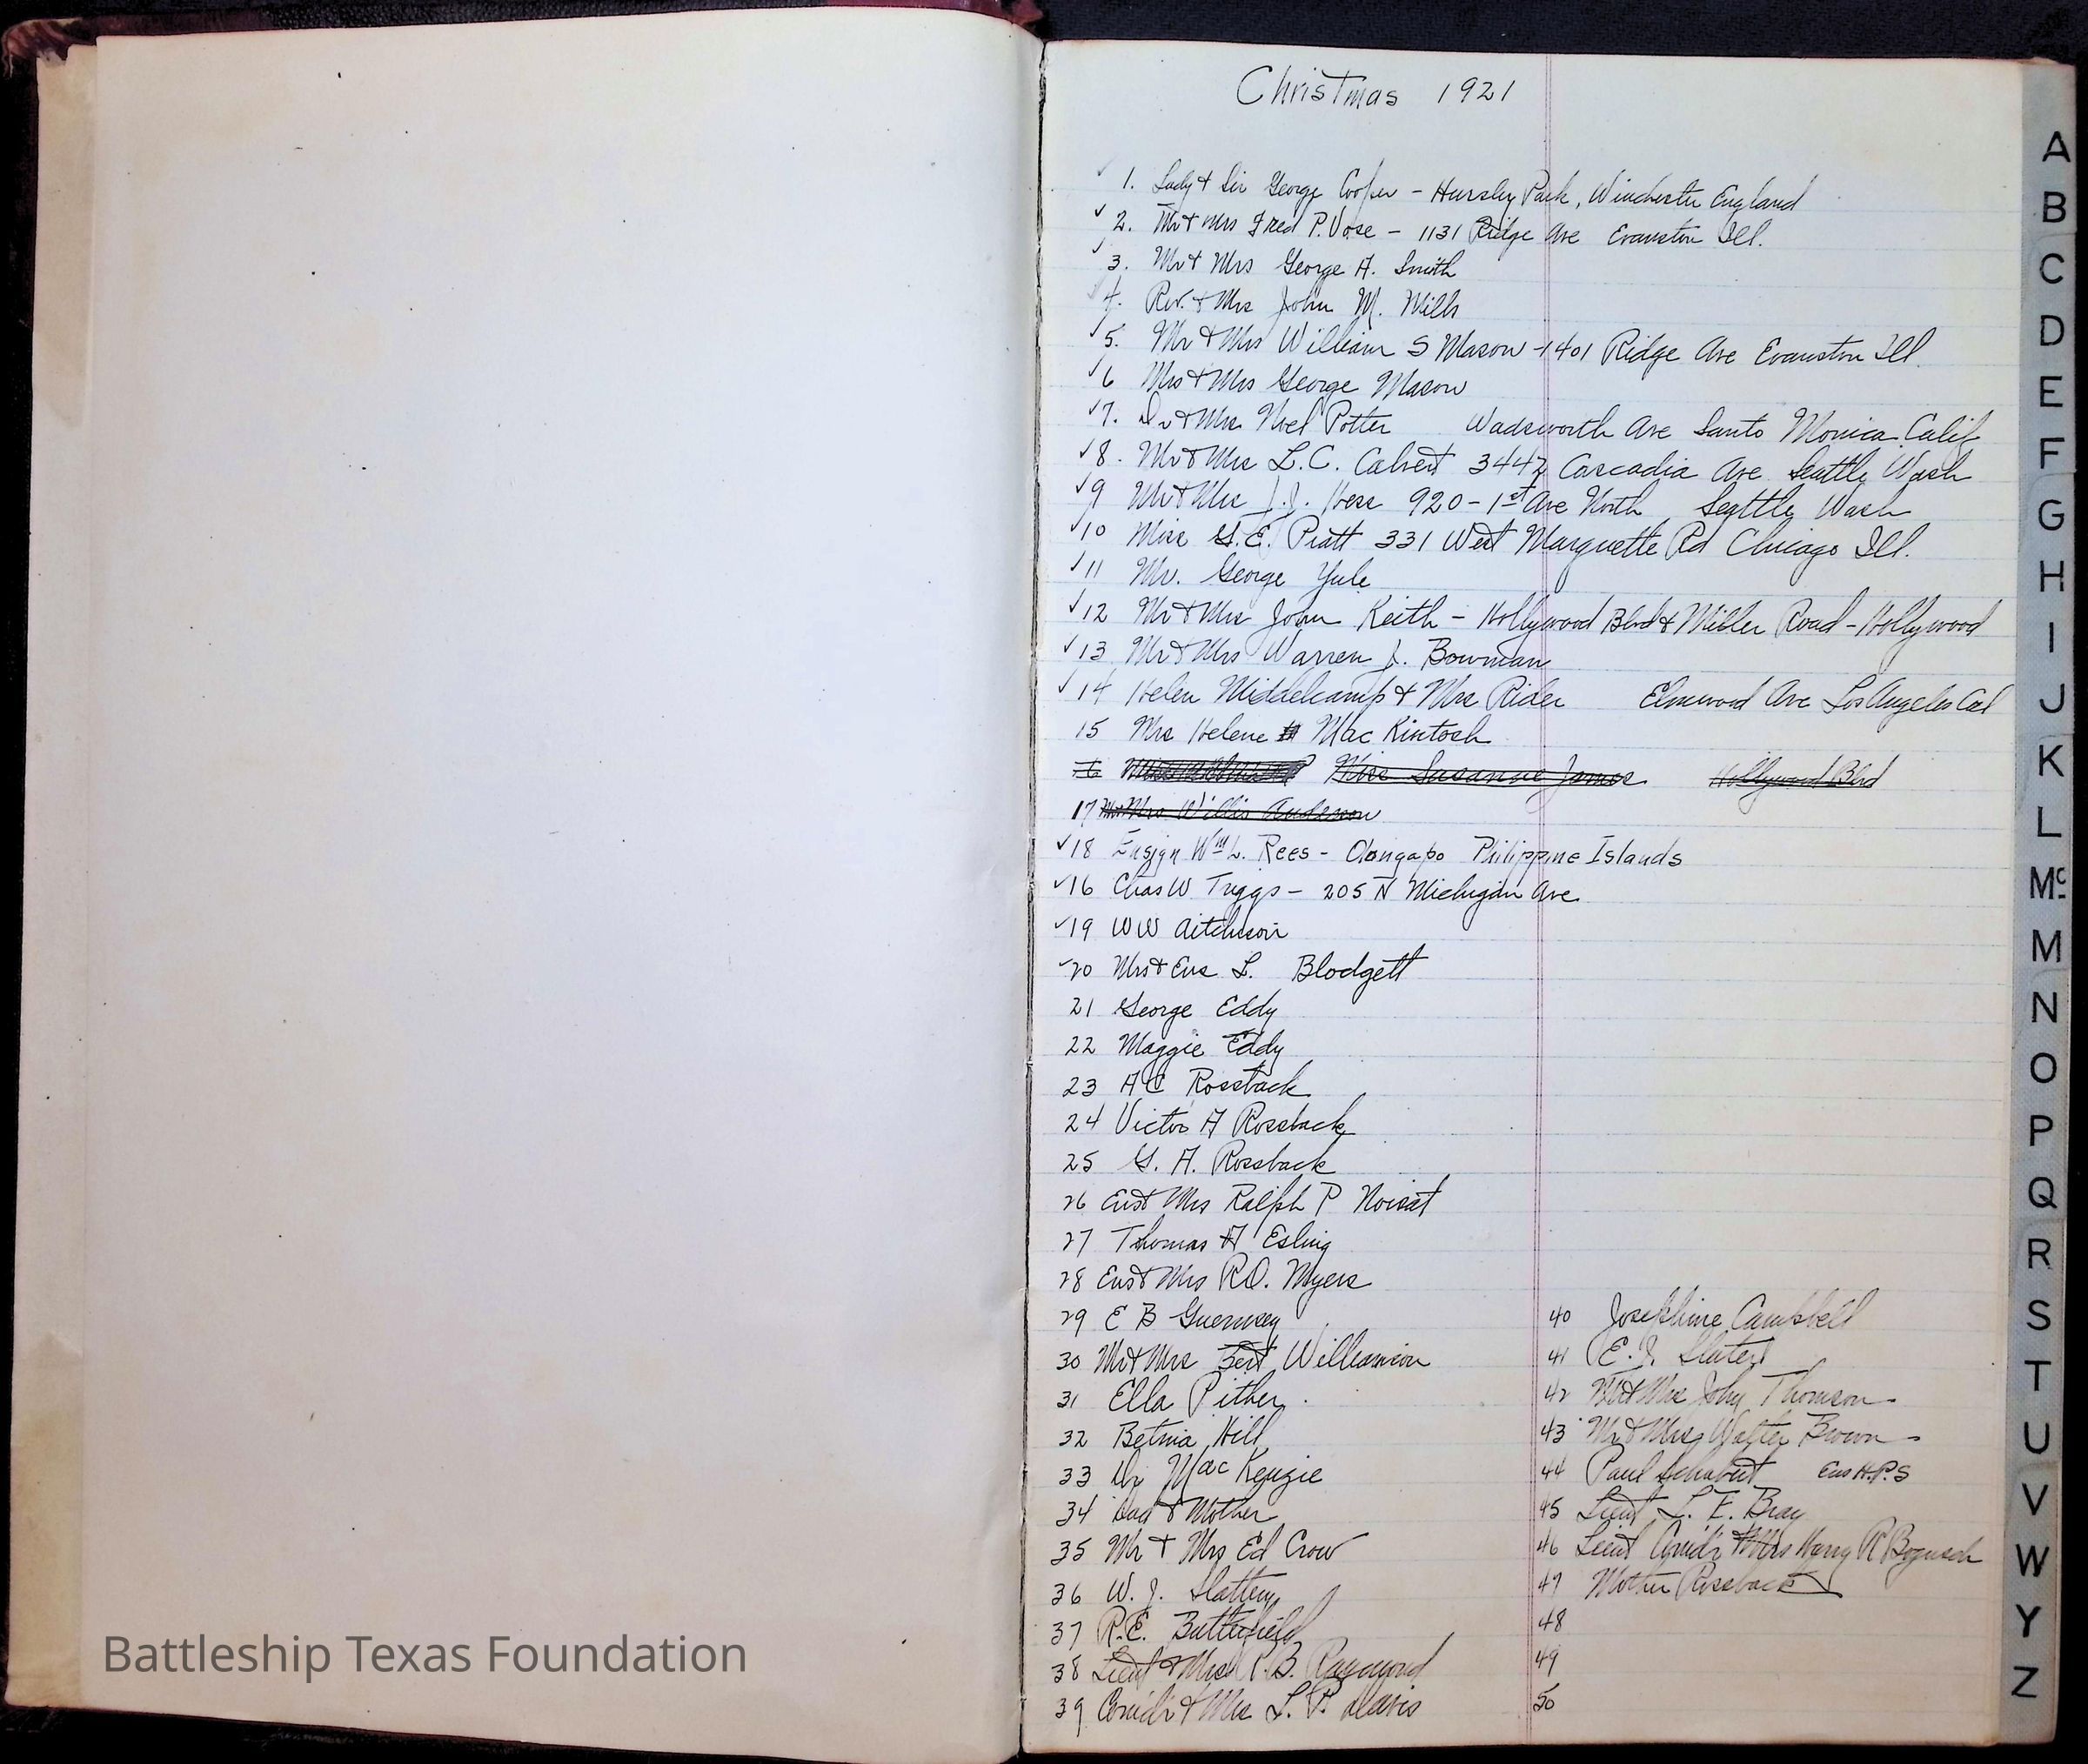 Christmas 1921
1. Lady & Sir George Cooper - Hursley Park, Winchester England
2. Mr & Mrs Fred P. Vose - 1131 Ridge Ave Evanston Ill.
3. Mr & Mrs George A. Smith
4. Rev. & Mrs John M. Mills
5. Mr & Mrs William S Mason - 1401 Ridge Ave Evanston Ill.
6 Mrs & Mrs George Mason
7. Dr & Mrs. Noel Potter Wadsworth Ave Santo Monica Calif
8. Mr & Mrs L.C. Calvert 3447 Cascadia Ave Seattle Wash
9 Mr & Mrs J.J. Hess 920 - 1st Ave North Seattle Wash
10 Miss G.E. Pratt 331 West Marquette Rd Chicago Ill.
11 Mr. George Yule
12 Mr & Mrs John Keith - Hollywood Blvd & Miller Road - Hollywood
13 Mr & Mrs Warren J. Bowman
14 Helen Middelcamp & Mrs Rider Elmwood Ave Los Angeles Cal
15 Mrs Helene Mac Kintosh
16 Miss Susanne James Hollywood Blvd
17 Mr & Mrs Willis Anderson
18 Ensign Wm L. Rees - Olongapo Philippine Islands
16 Chas W Triggs - 205 N Michigan Ave
19 WW Aitchison
20 Mrs & Ens L. Blodgett
21 George Eddy
22 Maggie Eddy
23 AC Rossback
24 Victor A Rossback
25 G. A. Rossback
26 Ens & Mrs Ralph P Noisat
27 Thomas A Esling
28 Ens & Mrs R.O. Myers
29 E B Guernsey
30 Mr & Mrs Bert Williamson
31 Ella Pither
32 Betnia Hill
33 Dr MacKenzie
34 Dad & Mother
35 Mr + Mrs Ed Crow
36 W. J. Slattery
37 R.E. Butterfield
38 Lieut & Mrs P.B. Raymond
39 Comdr & Mrs L. P. Davis
40 Josephine Campbell
41 E. J. Slater
42 Mr & Mrs John Thomson
43 Mr & Mrs Walter Brown
44 Paul Schubert Ens H.P.S
45 Lieut L. E. Bray
46 Lieut Comdr & Mrs Harry R Bogusch
47 Mother Rossback
48
49
50
A
B
C
D
E
F
G
H
I
J
K
L
Mc
M
N
O
P
Q
R
S
T
U
V
W
Y
Z
Battleship Texas Foundation